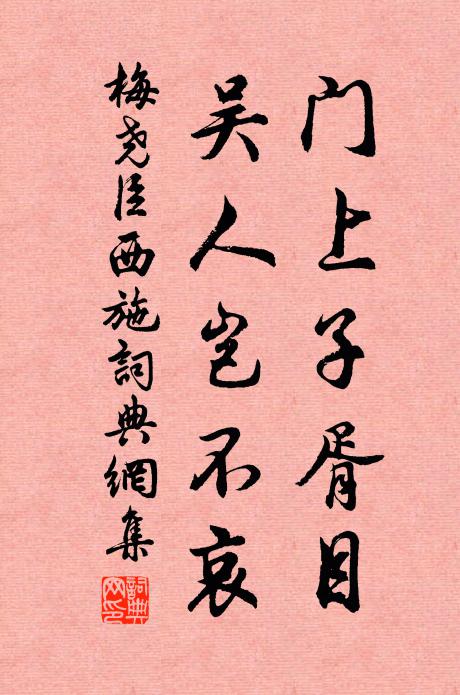 门上子胥目
吴人岂不哀
梅尧臣西施詞典網集
詞典网印